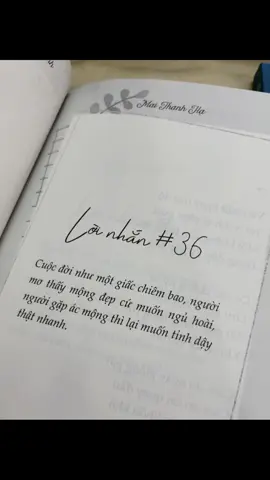 Mai Thanh Hạ
Lời nhắn #36
Cuộc đời như một giấc chiêm bao, người
mơ thấy mộng đẹp cứ muốn ngủ hoài,
người gặp ác mộng thì lại muốn tỉnh dậy
thật nhanh.